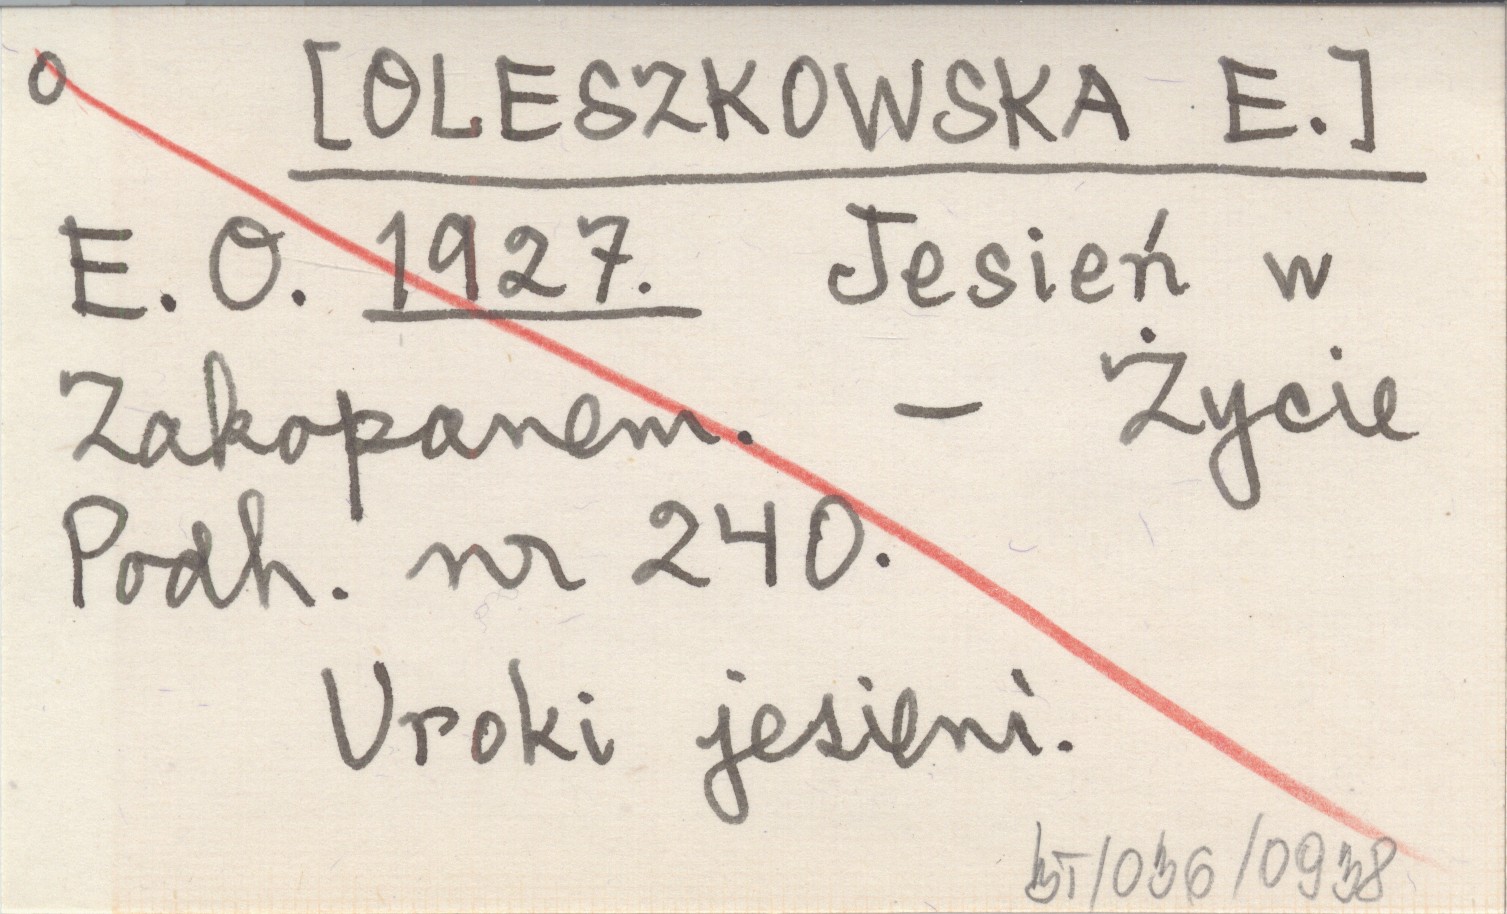 O
[OLESZKOWSKA E.]
E. O. 1927. Jesień w
Zakopanem. – Życie
Podh. nr 240.
Uroki jesieni.
BT/036/0938